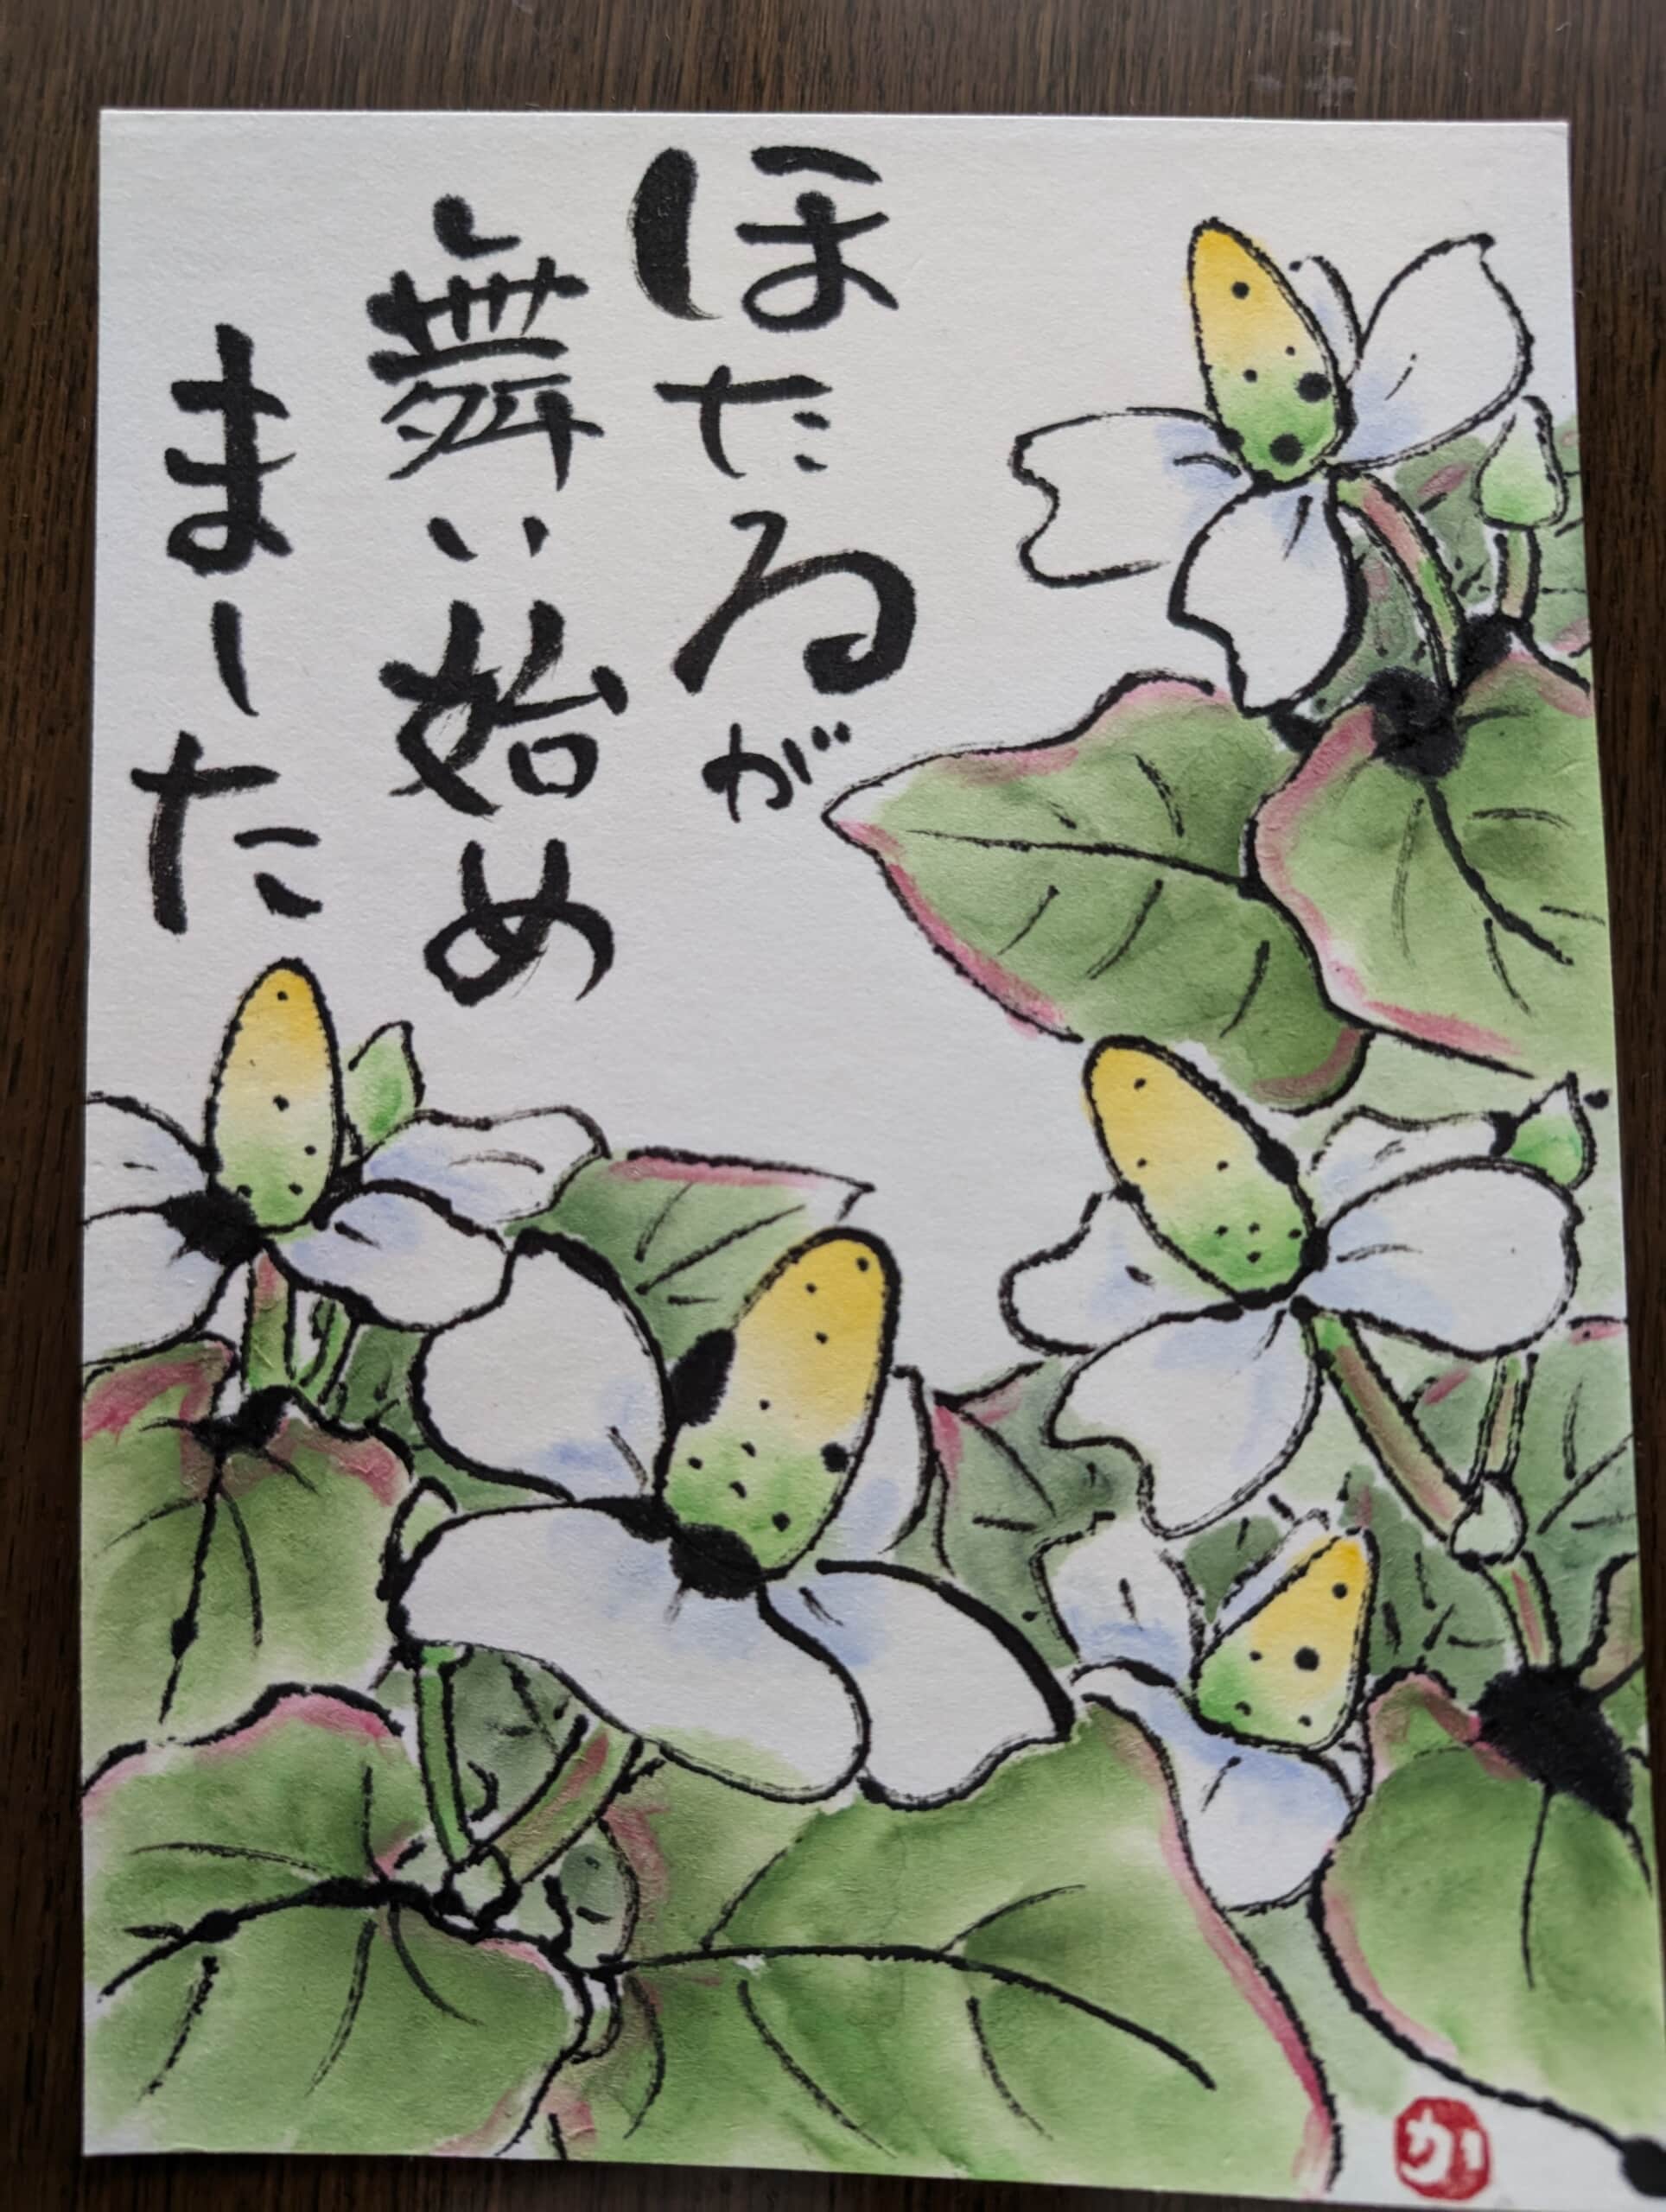 ほたるが
舞い始め
ました
か